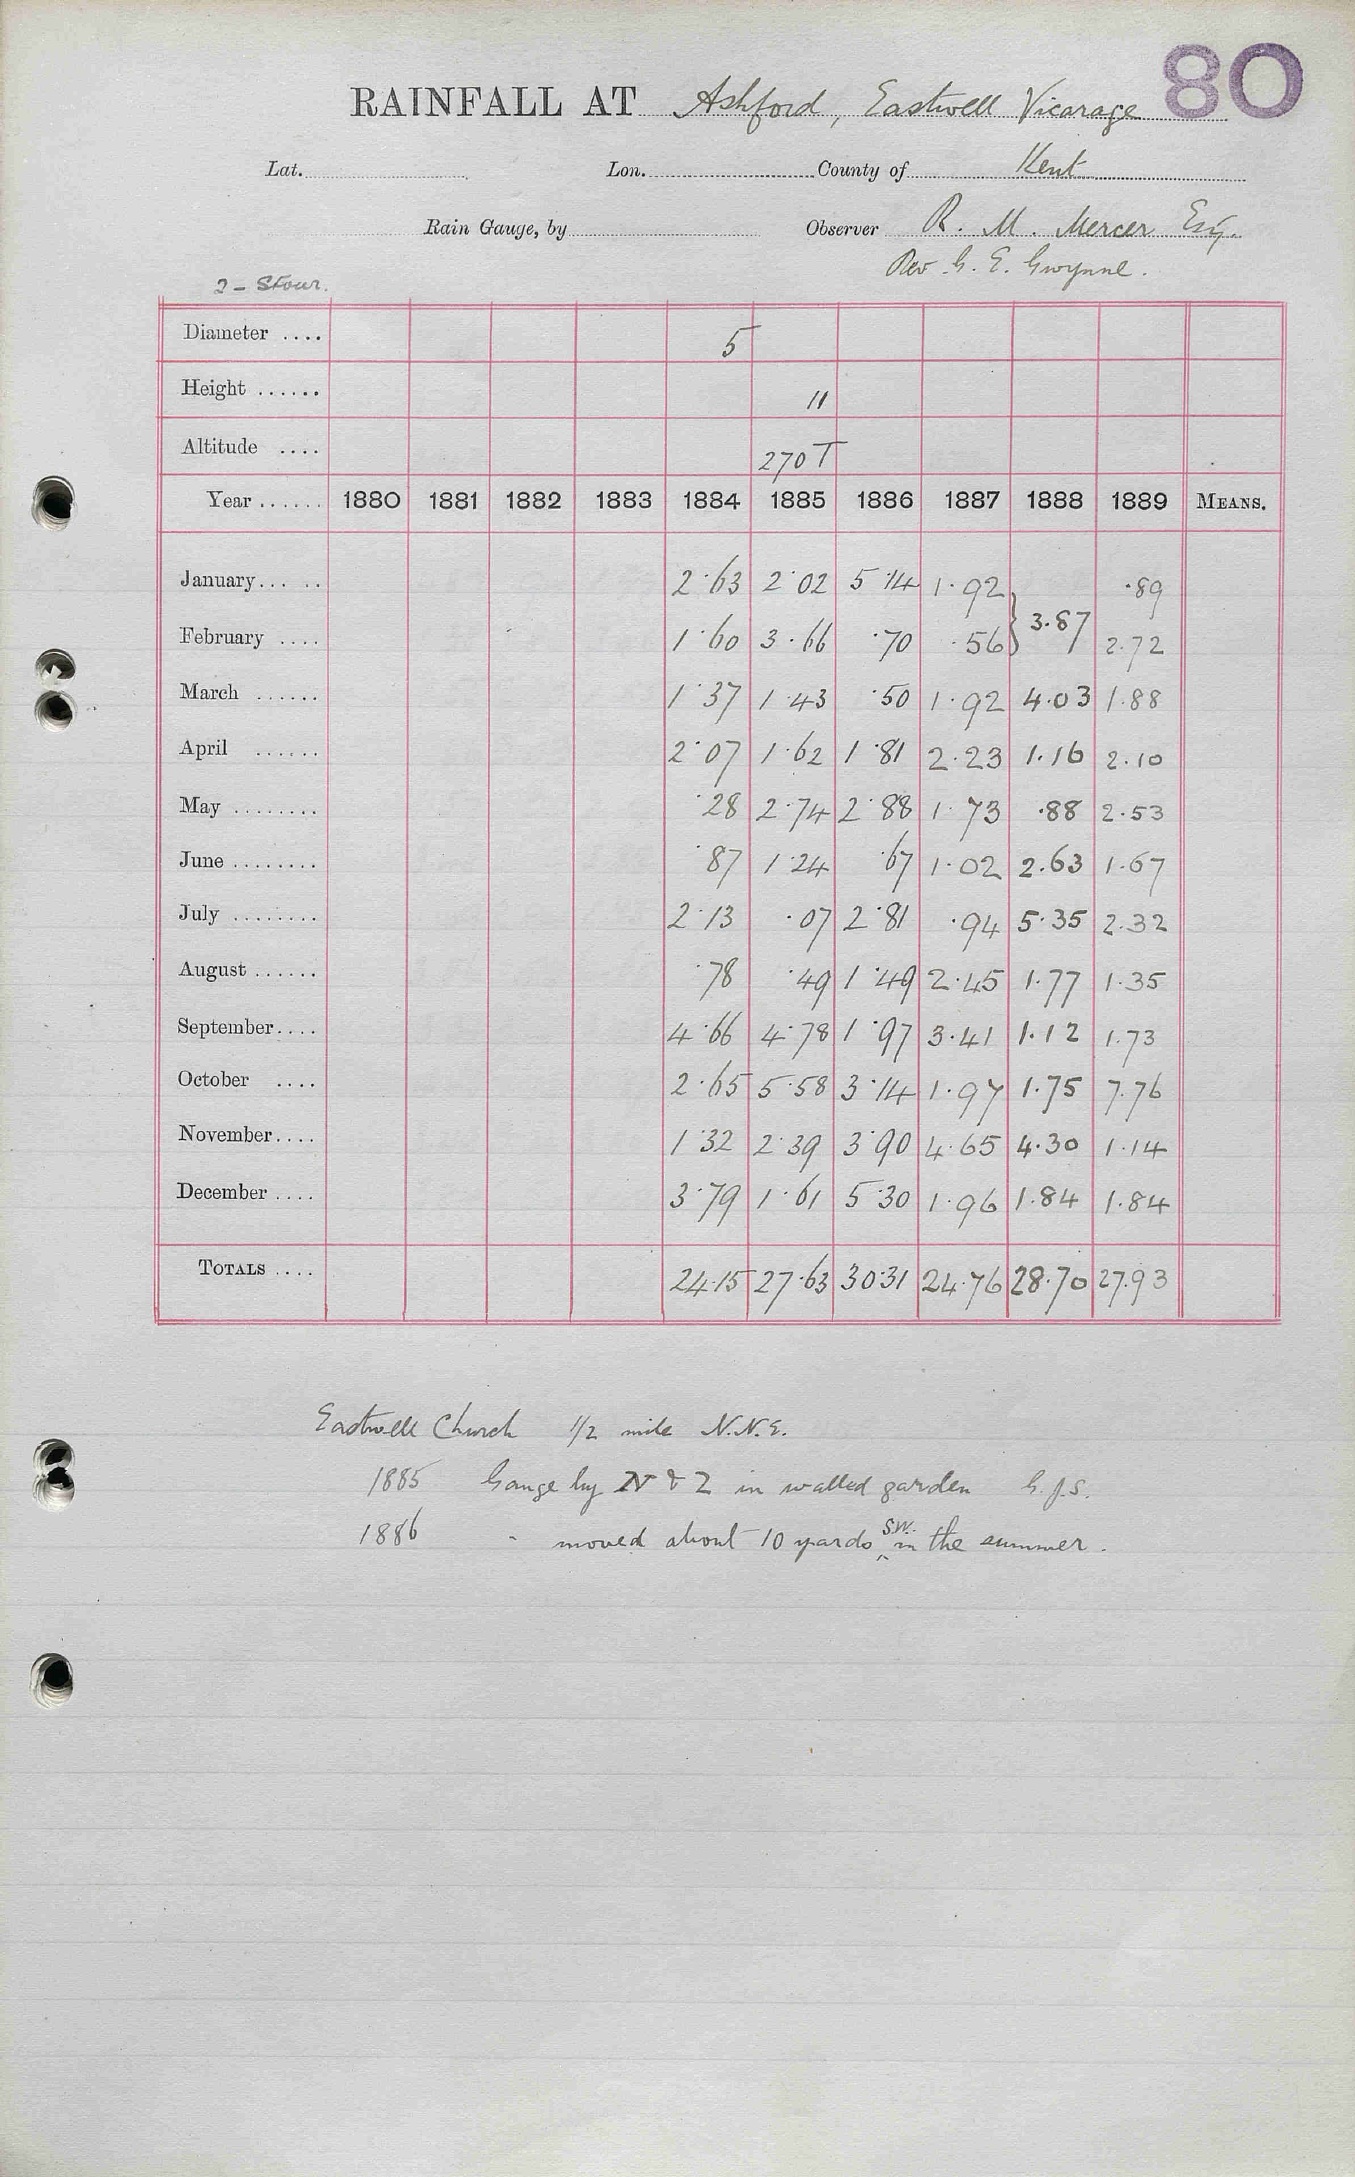 80
RAINFALL AT Ashford, Eastwell Vicarage
Lat. Lon. County of Kent
Rain Gauge, by Observer R. M. Mercer Esq.
Rev G. E. Gwynne.
2 - Stour.
Diameter .... 5
Height ...... 11
Altitude .... 270 T
Year ...... 1880 1881 1882 1883 1884 1885 1886 1887 1888 1889 MEANS.
January... .. 2.63 2.02 5.14 1.92 } 3.87 .89
February .... 1.60 3.66 .70 .56 2.72
March ...... 1.37 1.43 .50 1.92 4.03 1.88
April ...... 2.07 1.62 1.81 2.23 1.16 2.10
May ........ .28 2.74 2.88 1.73 .88 2.53
June ........ .87 1.24 .67 1.02 2.63 1.67
July ........ 2.13 .07 2.81 .94 5.35 2.32
August ...... .78 .49 1.49 2.45 1.77 1.35
September.... 4.66 4.78 1.97 3.41 1.12 1.73
October .... 2.65 5.58 3.14 1.97 1.75 7.76
November.... 1.32 2.39 3.90 4.65 4.30 1.14
December .... 3.79 1.61 5.30 1.96 1.84 1.84
TOTALS .... 24.15 27.63 30.31 24.76 28.70 27.93
Eastwell Church 1/2 mile N.N.E.
1885 Gauge by N & Z in walled garden G.J.S.
1886 " moved about 10 yards SW. in the summer.